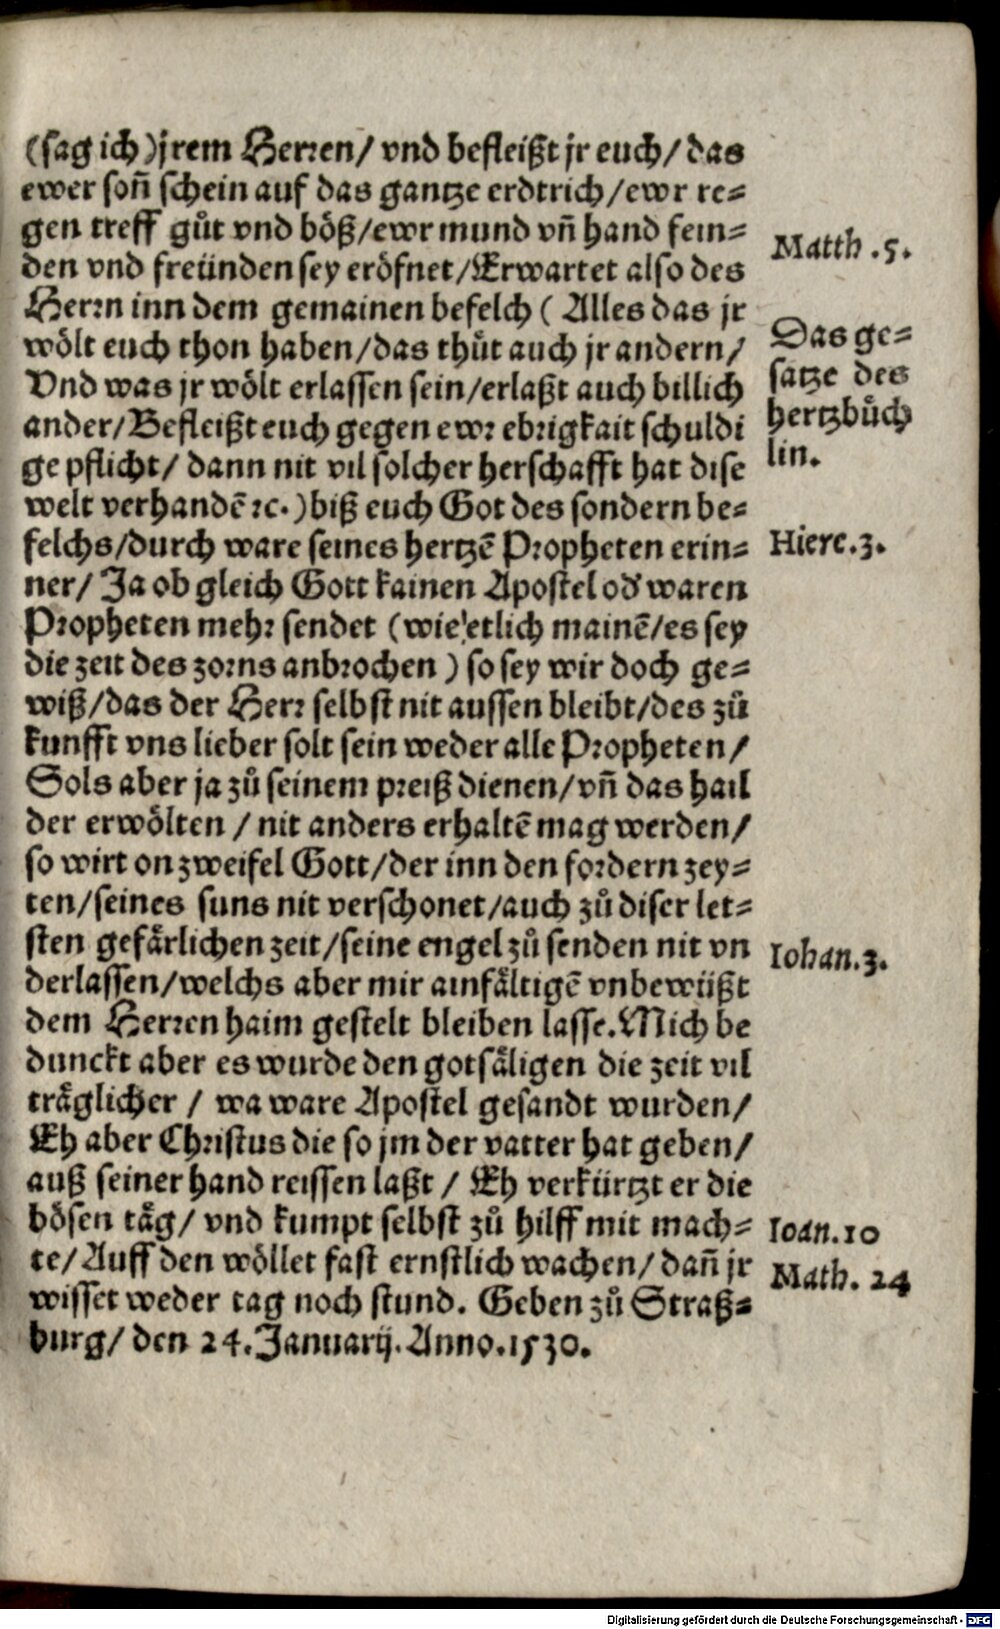 (sag ich) jrem Herren / vnd befleißt jr euch / das
ewer soñ schein auf das gantze erdtrich / ewr re=
gen treff gůt vnd böß / ewr mund vñ hand fein=
den vnd freünden sey eröfnet / Erwartet also des
Herrn inn dem gemainen befelch ( Alles das jr
wölt euch thon haben / das thůt auch jr andern /
Vnd was jr wölt erlassen sein / erlaßt auch billich
ander / Befleißt euch gegen ewr ebrigkait schuldi
ge pflicht / dann nit vil solcher herschafft hat dise
welt verhandē ꝛc.) biß euch Got des sondern be=
felchs / durch ware seines hertzē Propheten erin=
ner / Ja ob gleich Gott kainen Apostel od' waren
Propheten mehr sendet (wie etlich mainē / es sey
die zeit des zorns anbrochen ) so sey wir doch ge=
wiß / das der Herr selbst nit aussen bleibt / des zů
kunfft vns lieber solt sein weder alle Propheten /
Sols aber ja zů seinem preiß dienen / vñ das hail
der erwölten / nit anders erhaltē mag werden /
so wirt on zweifel Gott / der inn den fordern zey=
ten / seines suns nit verschonet / auch zů diser let=
sten gefärlichen zeit / seine engel zů senden nit vn
derlassen / welchs aber mir ainfältigē vnbewüßt
dem Herren haim gestelt bleiben lasse. Mich be
dunckt aber es wurde den gotsäligen die zeit vil
träglicher / wa ware Apostel gesandt wurden /
Eh aber Christus die so jm der vatter hat geben /
auß seiner hand reissen laßt / Eh verkürtzt er die
bösen täg / vnd kumpt selbst zů hilff mit mach=
te / Auff den wöllet fast ernstlich wachen / dañ jr
wisset weder tag noch stund. Geben zů Straß=
burg / den 24. Januarij. Anno. 1530.
Matth .5.
Das ge=
satze des
hertzbůch
lin.
Hiere.3.
Iohan.3.
Ioan.10
Math. 24
Digitalisierung gefördert durch die Deutsche Forschungsgemeinschaft - DFG